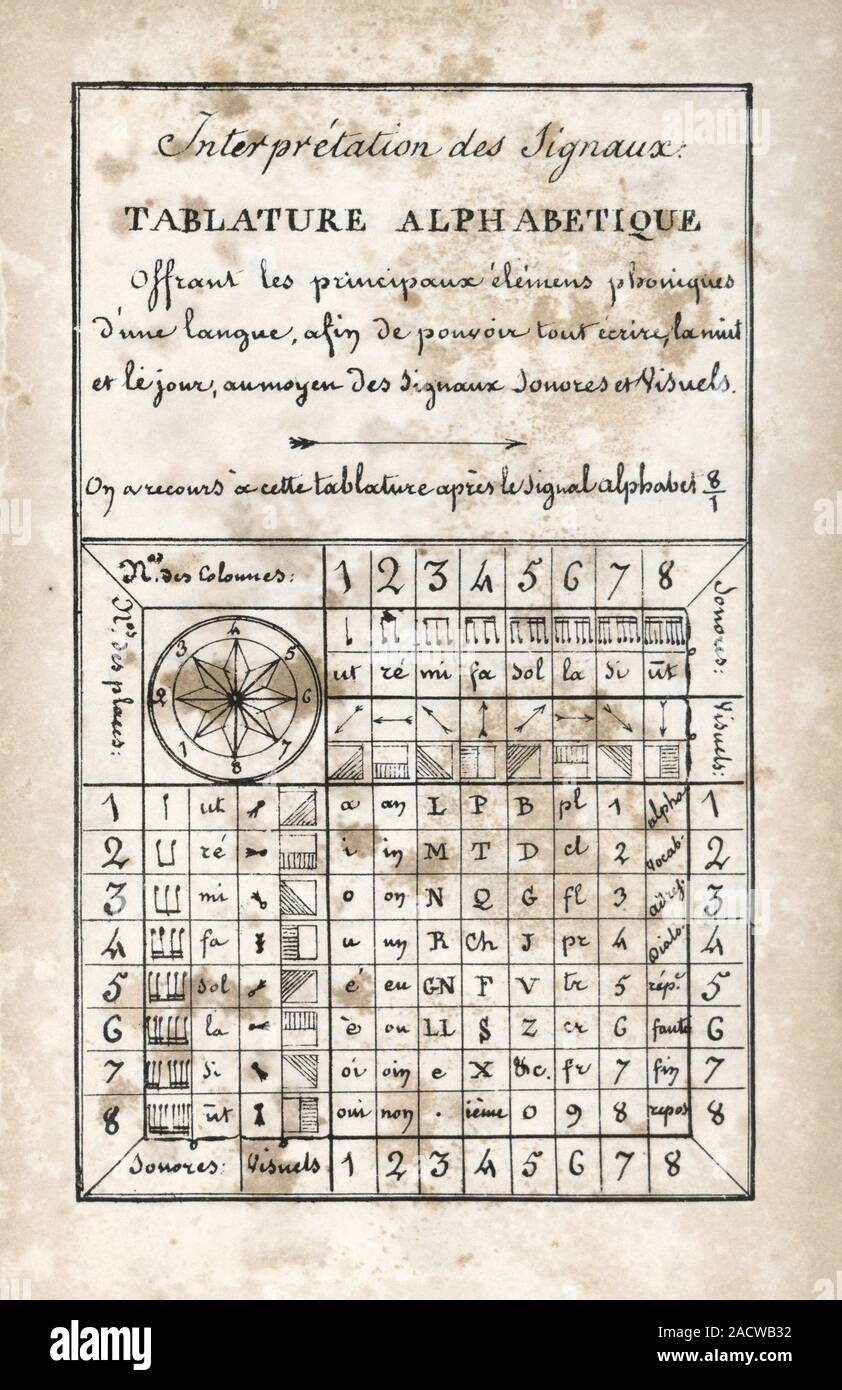 Interprétation des Signaux:
TABLATURE ALPHABETIQUE
Offrant les principaux élémens phoniques
d'une langue, afin de pouvoir tout écrire, la nuit
et le jour, au moyen des Signaux Sonores et Visuels.
On a recours à cette tablature après le Signal alphabet 8/1
Nos. des Colonnes: 1 2 3 4 5 6 7 8
Nos. des places:
Sonores:
1 2 3 4 5 6 7 8
ut ré mi fa sol la si ūt
Visuels:
1 ut a an L P B pl 1 alpha 1
2 ré i in M T D cl 2 Vocab. 2
3 mi o on N Q G fl 3 adres. 3
4 fa u un R Ch J pr 4 Dialo. 4
5 sol é eu GN F V tr 5 rép. 5
6 la è ou LL S Z cr 6 faute 6
7 si oi oin e X &c. fr 7 fin 7
8 ūt oui non . ième 0 9 8 repos 8
Sonores: Visuels 1 2 3 4 5 6 7 8
alamy
alamy
Image ID: 2ACWB32
www.alamy.com